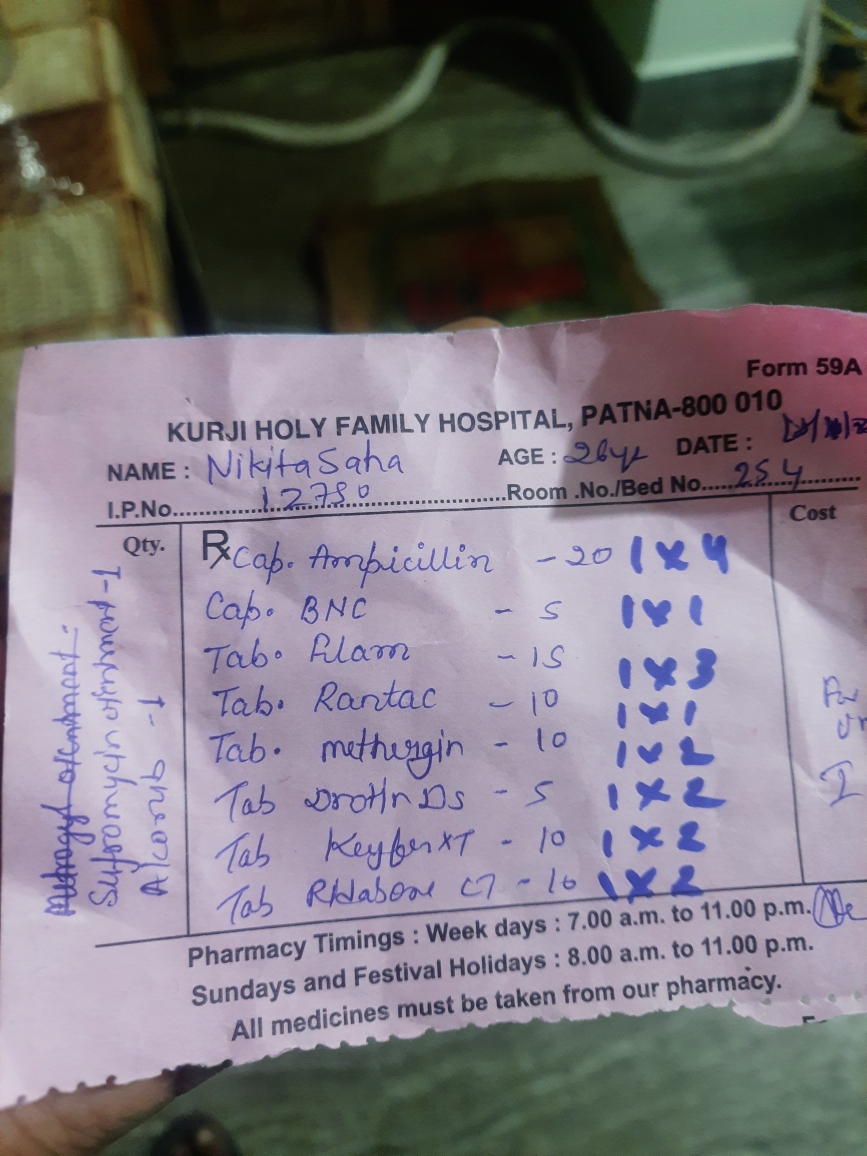 Form 59A
KURJI HOLY FAMILY HOSPITAL, PATNA-800 010
NAME : Nikita Saha AGE : 26yr DATE :
I.P.No. 12780 Room .No./Bed No. 254
Qty. Rx Cost
Cap. Ampicillin - 20 1 x 4
Cap. BNC - 5 1 x 1
Tab. - 15 1 x 3
Tab. Rantac - 10 1 x 1
Tab. methergin - 10 1 x 2
Tab Drotin Ds - 5 1 x 2
Tab XT - 10 1 x 2
Tab - 10 1 x 2
Metrogyl ointment :
ointment - 1
Alcorub - 1
Pharmacy Timings : Week days : 7.00 a.m. to 11.00 p.m.
Sundays and Festival Holidays : 8.00 a.m. to 11.00 p.m.
All medicines must be taken from our pharmacy.